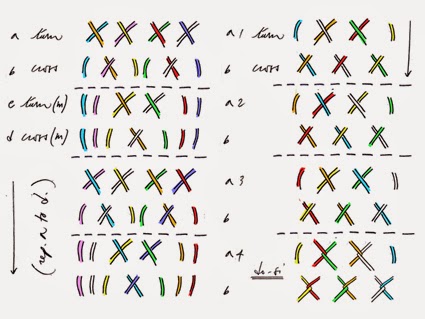 a turn
b cross
c turn (m)
d cross (m)
(rep. a to d.)
a 1 turn
b cross
a 2
b
a 3
b
a 4
b